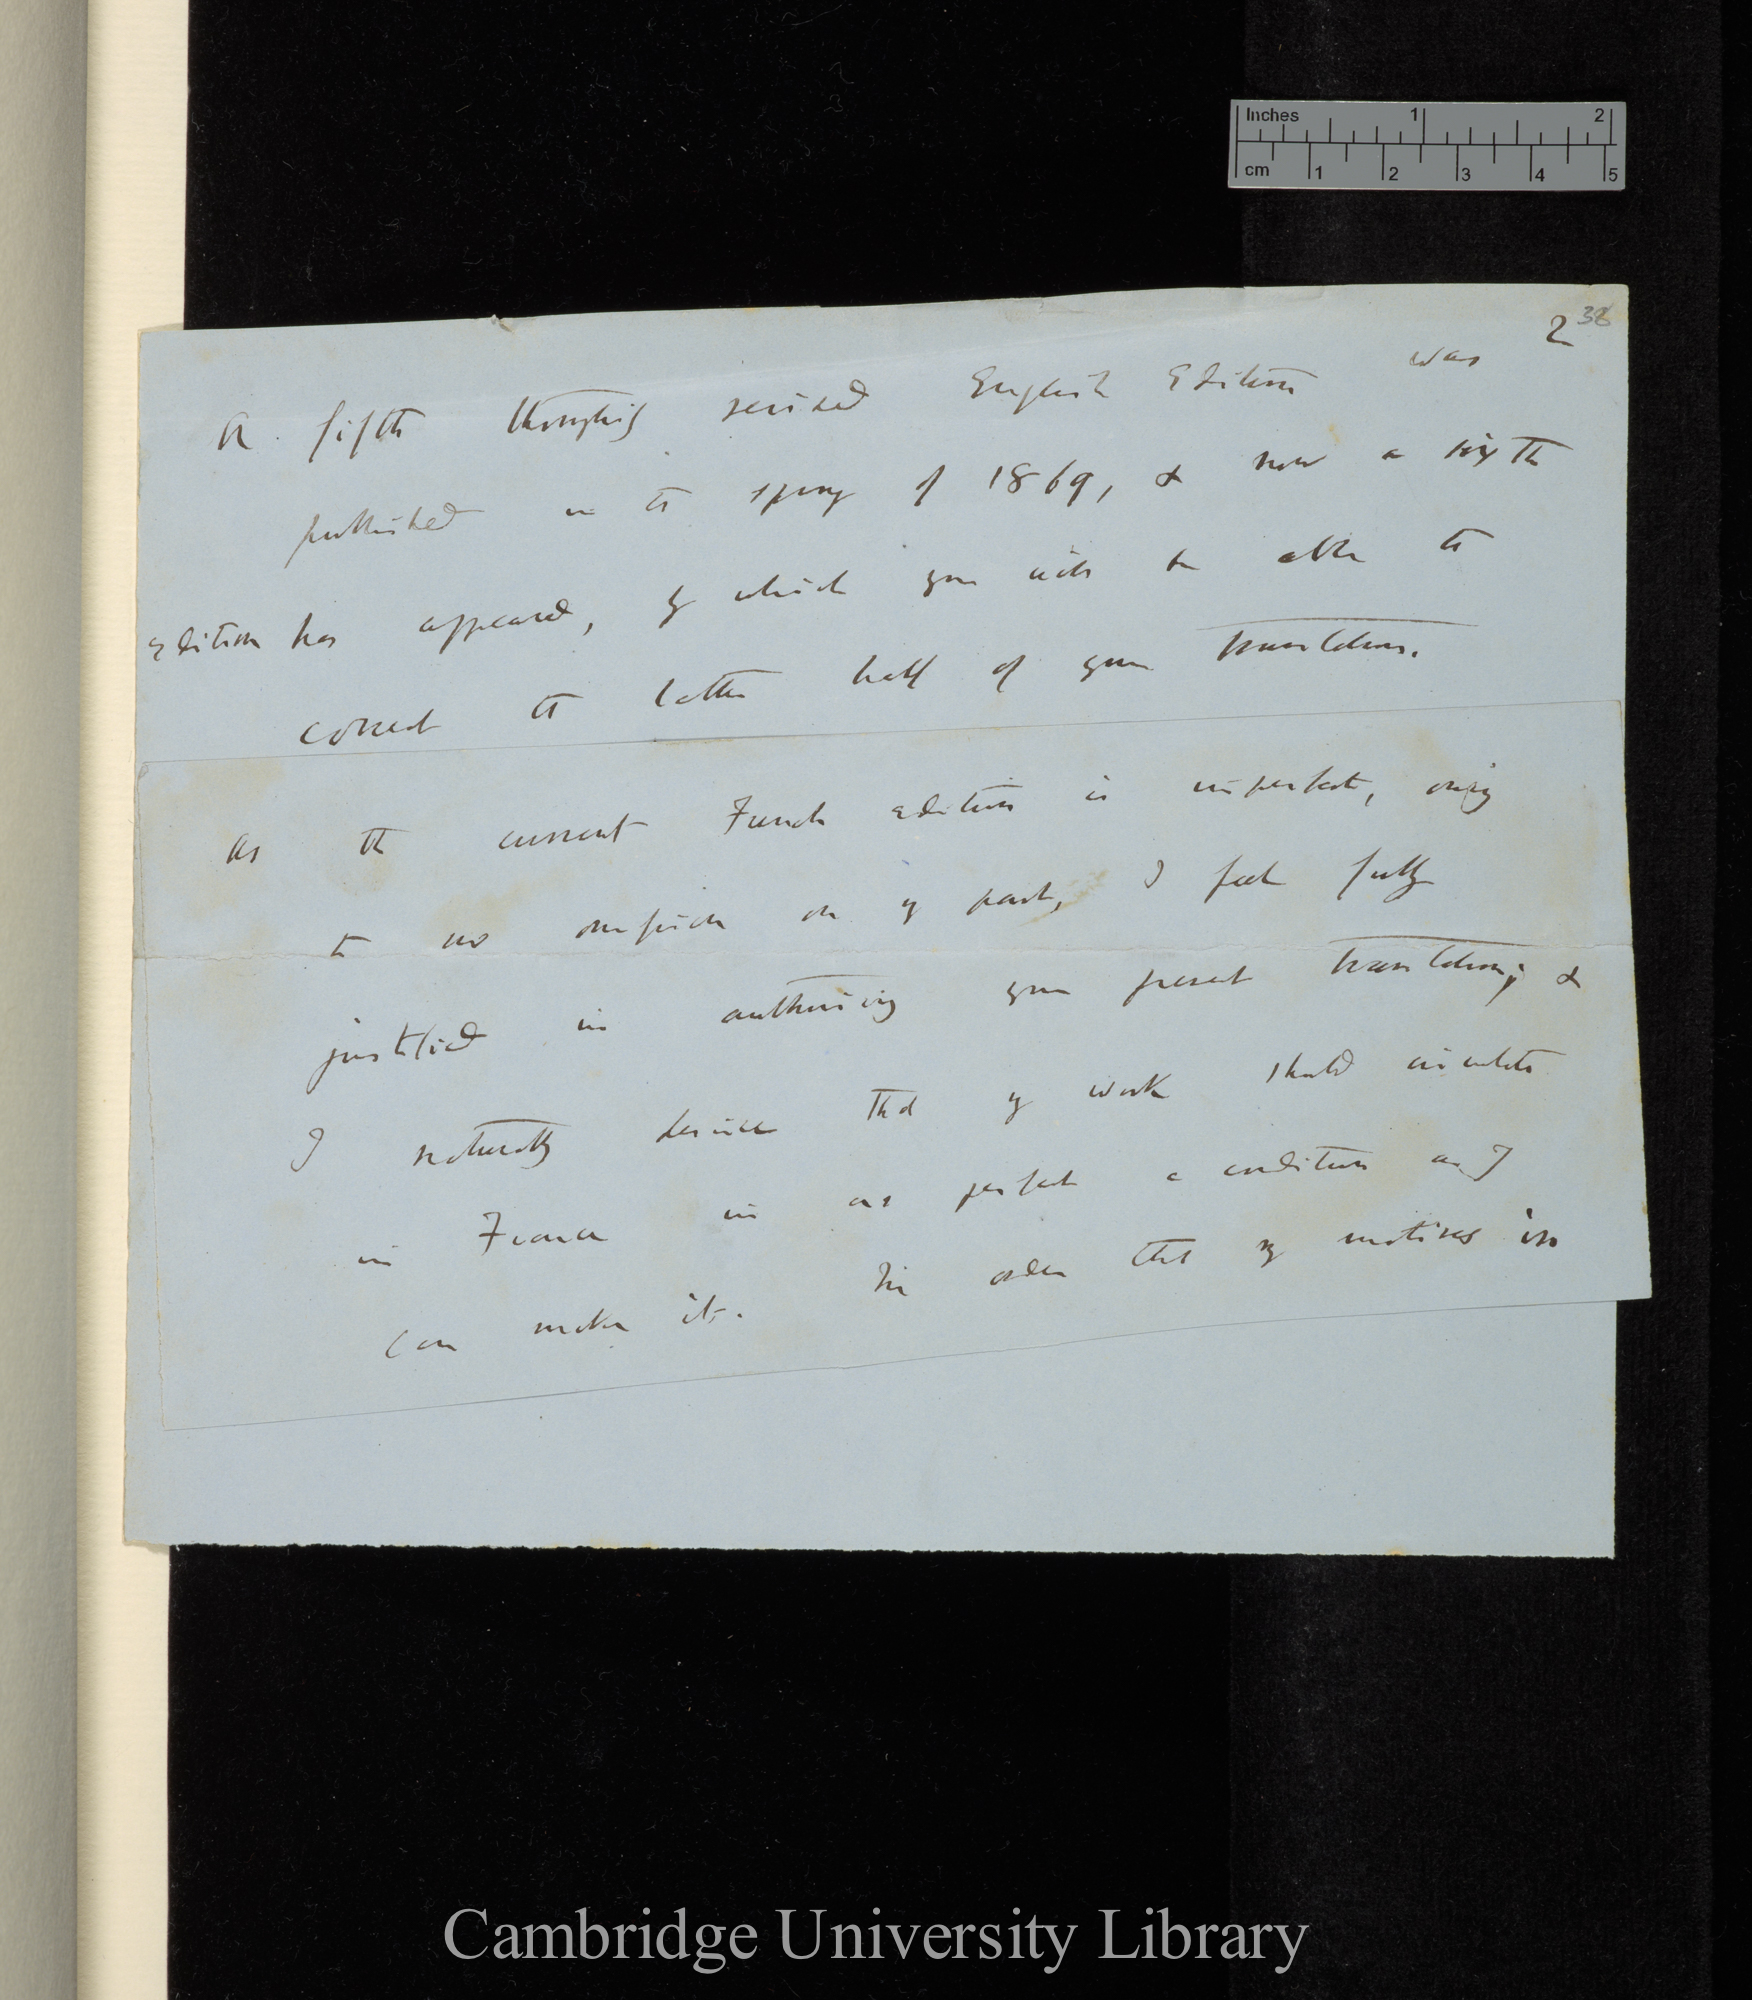 Inches 1 2
cm 1 2 3 4 5
2 38
A fifth thoroughly revised English Edition was
published in the spring of 1869, & now a sixth
edition has appeared, by which you will be able to
correct the latter half of your translation.
As the current French edition is imperfect, owing
to no omission on my part, I feel fully
justified in authorising your present translation; &
I naturally desire that my work should circulate
in France in as perfect a condition as I
can make it. In order that my motives in
Cambridge University Library